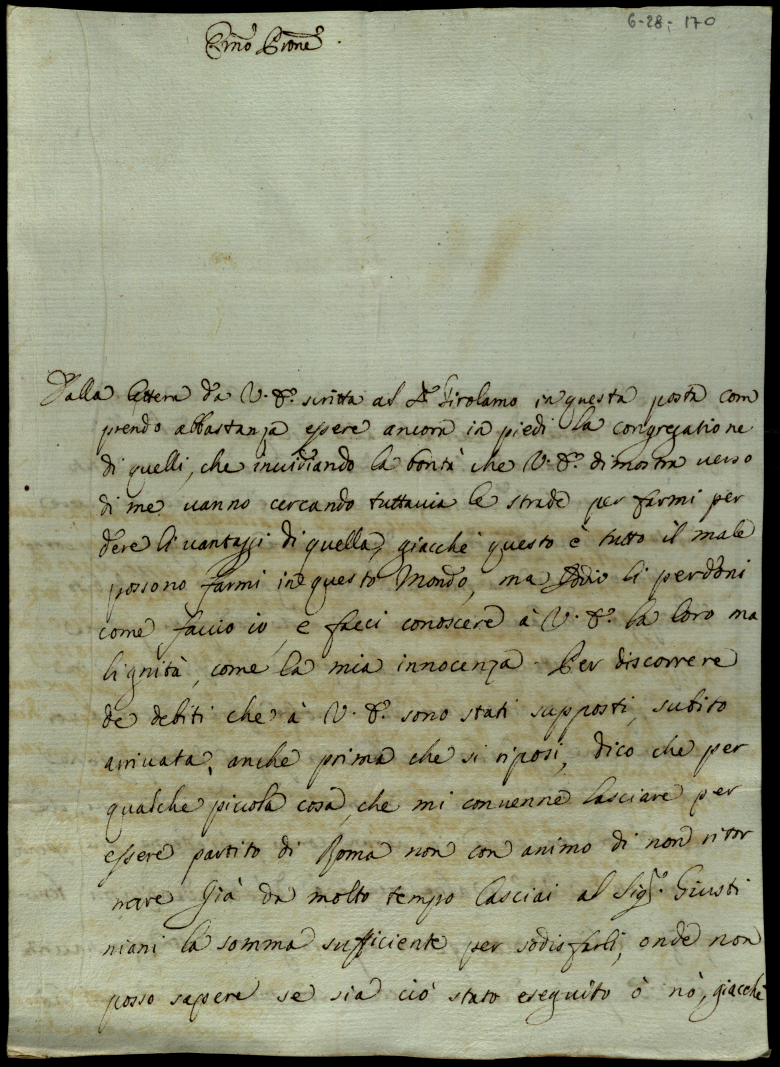 6-28-170
Emo Prone
Dalla lettera da V. Eª scritta al Sr Girolamo in questa posta com
prendo abbastanza essere ancora in piedi la congregatione
di quelli, che invidiando la bontà che V. Eª dimostra verso
di me vanno cercando tuttavia le strade per farmi per
dere li vantaggi di quella, giacche questo è tutto il male
possono farmi in questo Mondo, ma Iddio li perdoni
come faccio io, e facci conoscere à V. Eª la loro ma
lignità, come la mia innocenza. Per discorrere
de debiti che à V. Eª sono stati supposti, subito
arrivata, anche prima che si riposi, dico che per
qualche piccola cosa, che mi convenne lasciare per
essere partito di Roma non con animo di non ritor
nare già da molto tempo lasciai al Sigr Giusti
niani la somma sufficiente per sodisfarli, onde non
posso sapere se sia ciò stato eseguito ò nò, giacchè